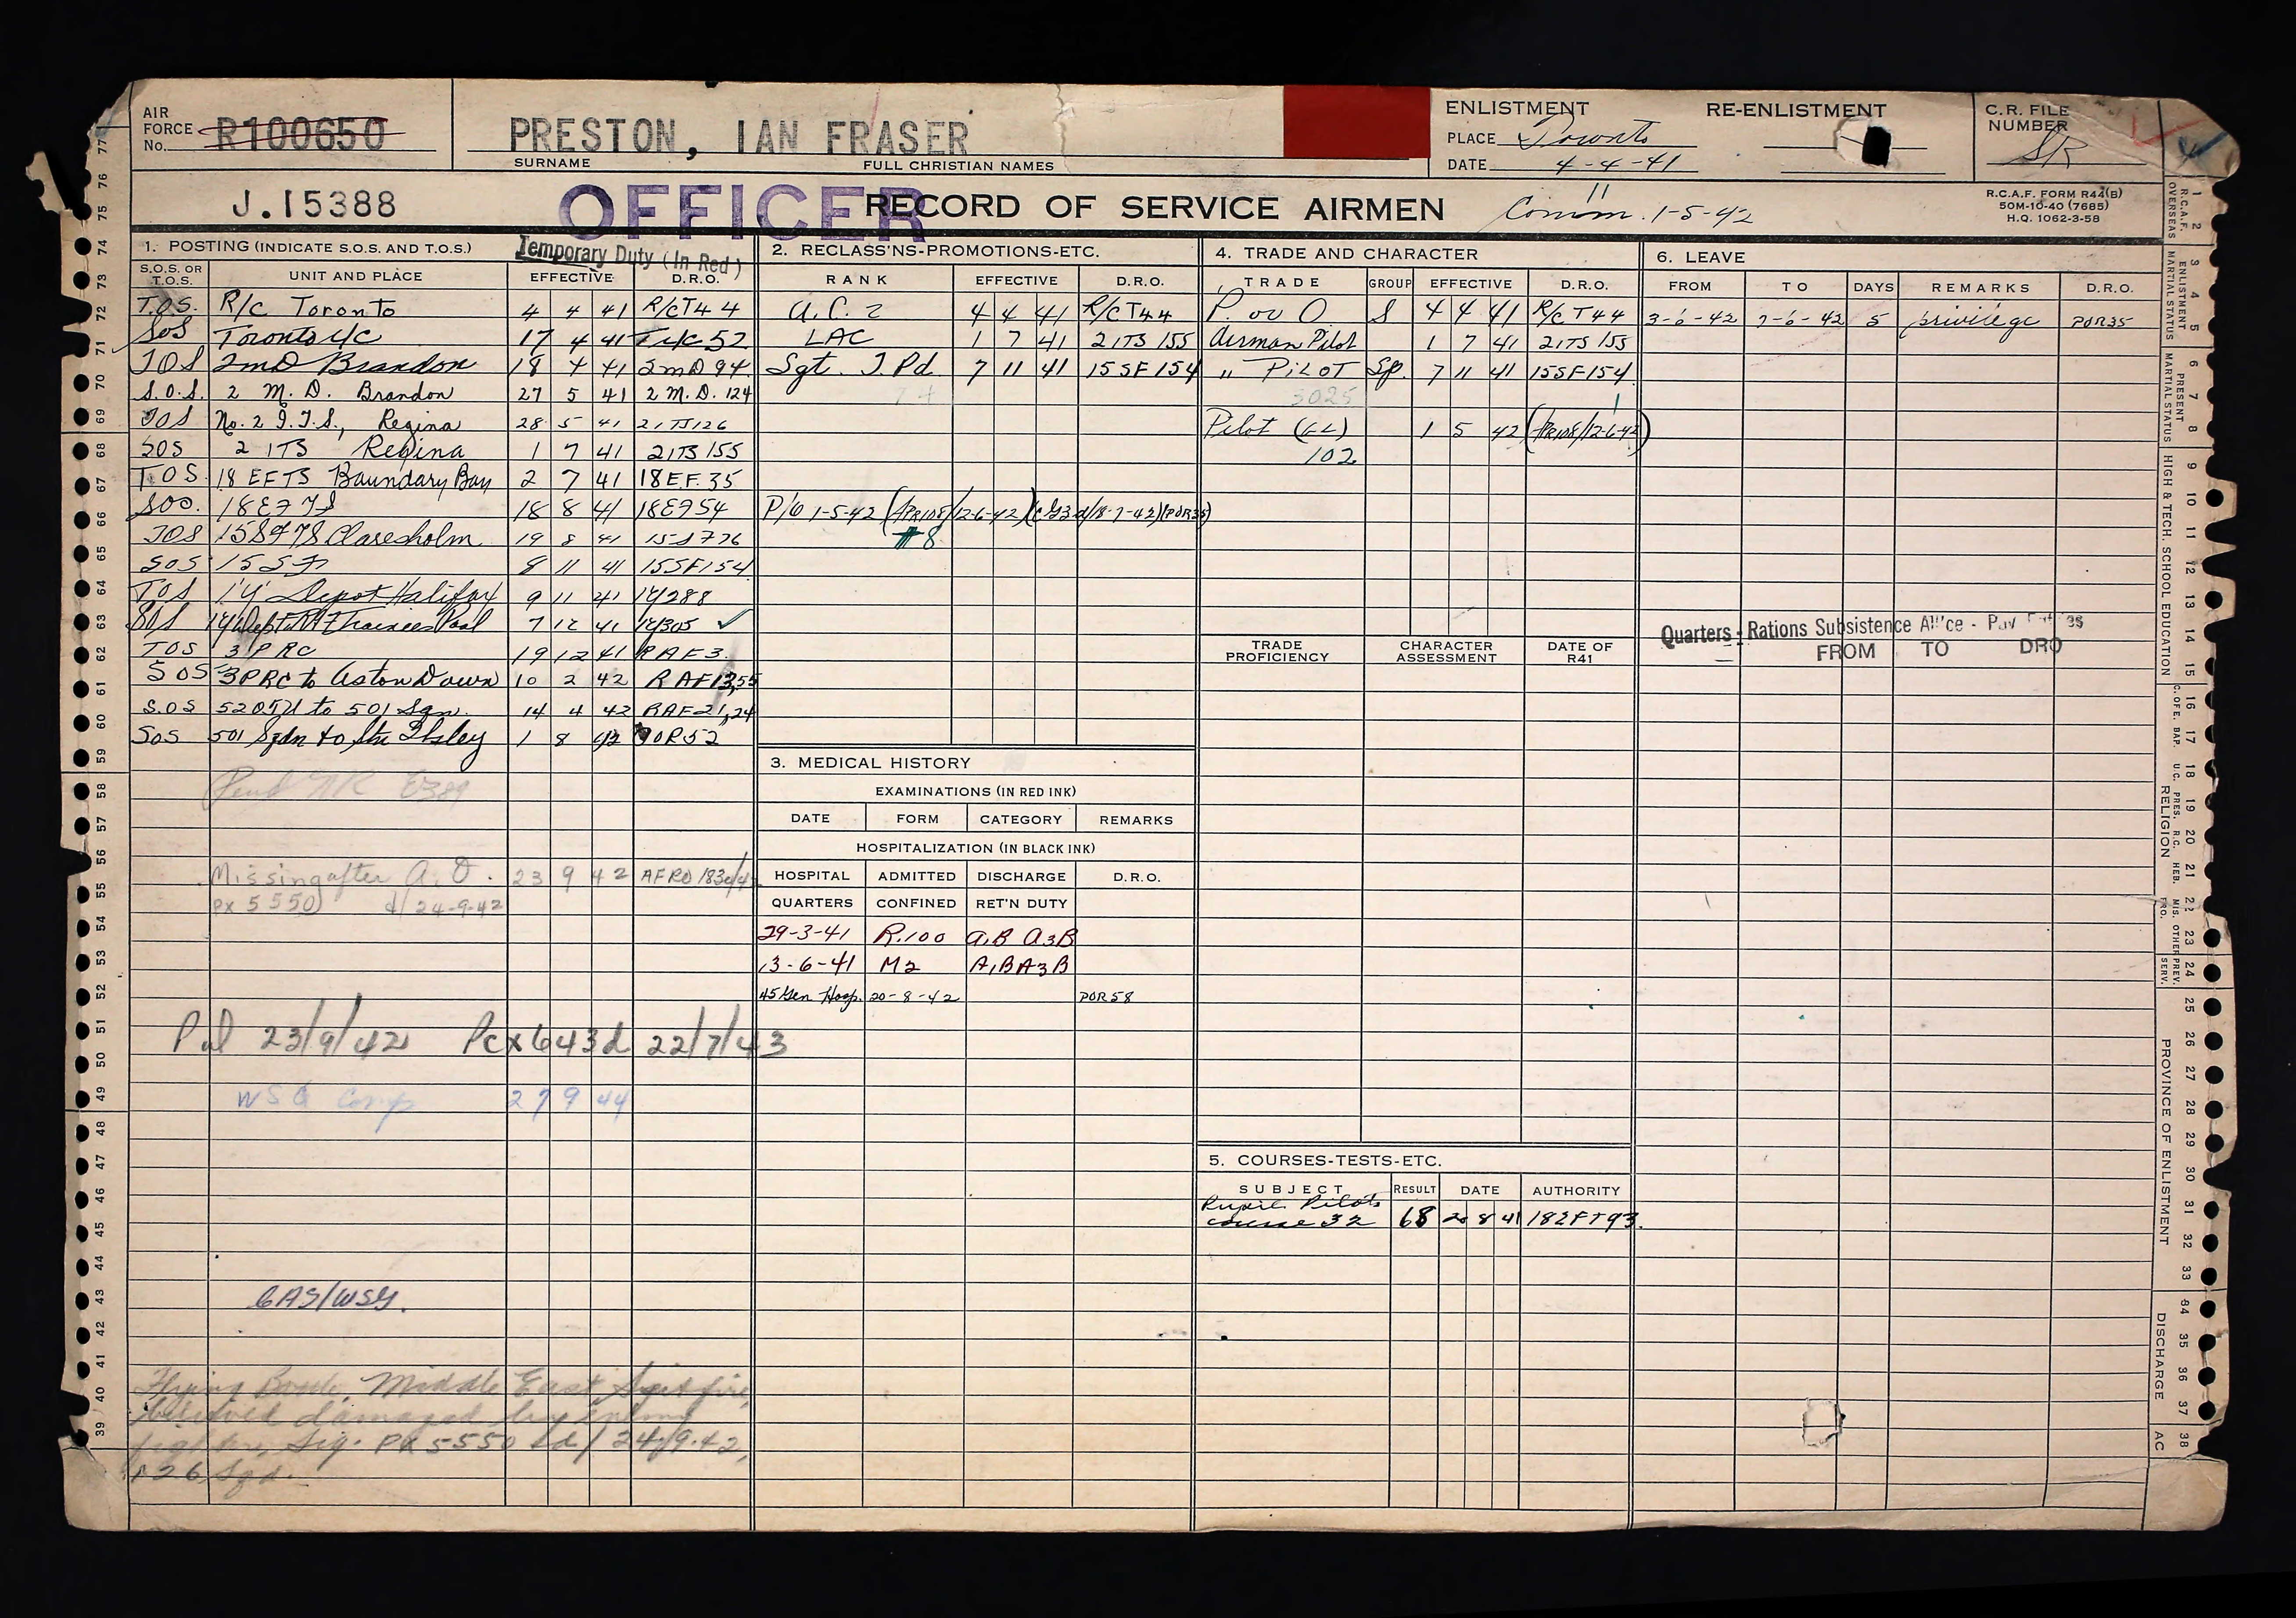 AIR FORCE No. R100650
PRESTON, IAN FRASER
SURNAME FULL CHRISTIAN NAMES
ENLISTMENT RE-ENLISTMENT
PLACE Toronto
DATE 4-4-41
C.R. FILE NUMBER
SR
J.15388
OFFICER
RECORD OF SERVICE AIRMEN
Comm. 1-5-42
R.C.A.F. FORM R44(B)
50M-10-40 (7685)
H.Q. 1062-3-58
1. POSTING (INDICATE S.O.S. AND T.O.S.)
Temporary Duty (In Red)
S.O.S. OR T.O.S. UNIT AND PLACE EFFECTIVE D.R.O.
T.O.S. R/C Toronto 4 4 41 R/CT44
SOS Toronto 17 4 41 52
TOS 2MD Brandon 18 4 41 2MD 94
S.O.S. 2 M.D. Brandon 27 5 41 2 M.D. 124
TOS No. 2 I.T.S., Regina 28 5 41 2ITS126
SOS 2 ITS Regina 1 7 41 2ITS 155
T.O.S. 18 EFTS Boundary Bay 2 7 41 18 E.F. 35
SOS. 18EFTS 18 8 41 18EF54
TOS 15SFTS Claresholm 19 8 41
SOS 15 SF 8 11 41 15SF154
TOS 1'Y' Depot Halifax 9 11 41 1Y288
SOS 1Y Dept Trainees Pool 7 12 41 1Y305 ✓
TOS 3 PRC 19 12 41 RAF3.
SOS 3PRC to Aston Down 10 2 42 RAF13,55
S.O.S 52OTU to 501 Sqn. 14 4 42 RAF21,24
SOS 501 Sqdn to Stn Ibsley 1 8 42 POR52
E389
Missing after A.O. 23 9 42 AFRO
PX 5550 d/24-9-42
23/9/42 Pcx643d 22/7/43
WSG Comp 27 9 44
CAS/WSG.
Flying Battle, Middle East, Spitfire,
believed damaged by enemy
fighter, Sig. PX5550 d/ 24/9.42,
126 Sqd.
2. RECLASS'NS-PROMOTIONS-ETC.
RANK EFFECTIVE D.R.O.
A.C.2 4 4 41 R/CT44
LAC 1 7 41 2ITS 155
Sgt. T.Pd. 7 11 41 15SF154
P/O 1-5-42 (APR108/12-6-42)
#8
3. MEDICAL HISTORY
EXAMINATIONS (IN RED INK)
DATE FORM CATEGORY REMARKS
HOSPITALIZATION (IN BLACK INK)
HOSPITAL ADMITTED DISCHARGE D.R.O.
QUARTERS CONFINED RET'N DUTY
29-3-41 R.100 A1B A3B
13-6-41 M2 A1BA3B
45 Gen Hosp. 20-8-42 POR58
4. TRADE AND CHARACTER
TRADE GROUP EFFECTIVE D.R.O.
P. or O S 4 4 41 R/CT44
Airman Pilot 1 7 41 2ITS 155
" PILOT Sp. 7 11 41 15SF154
3025
Pilot 1 5 42 (APR108/12-6-42)
102
TRADE PROFICIENCY CHARACTER ASSESSMENT DATE OF R41
5. COURSES-TESTS-ETC.
SUBJECT RESULT DATE AUTHORITY
Pupil Pilots
course 32 68 20 8 41 18EFT93.
6. LEAVE
FROM TO DAYS REMARKS D.R.O.
3-6-42 7-6-42 5 privilege POR35
Quarters - Rations Subsistence All'ce -
FROM TO DRO
77 76 75 74 73 72 71 70 69 68 67 66 65 64 63 62 61 60 59 58 57 56 55 54 53 52 51 50 49 48 47 46 45 44 43 42 41 40 39
1 2 3 4 5 6 7 8 9 10 11 12 13 14 15 16 17 18 19 20 21 22 23 24 25 26 27 28 29 30 31 32 33 34 35 36 37 38
R.C.A.F. OVERSEAS
ENLISTMENT MARTIAL STATUS
PRESENT MARTIAL STATUS
HIGH & TECH. SCHOOL EDUCATION
C. OF E. BAP. U.C. PRES. R.C. HEB. MIS. PRO. OTHER
RELIGION
PREV. SERV.
PROVINCE OF ENLISTMENT
DISCHARGE
AC